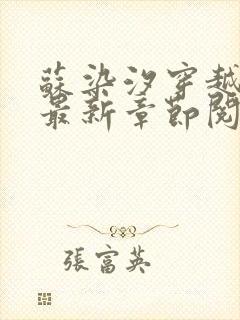 蘇染汐穿越
最新章節閱
張富英